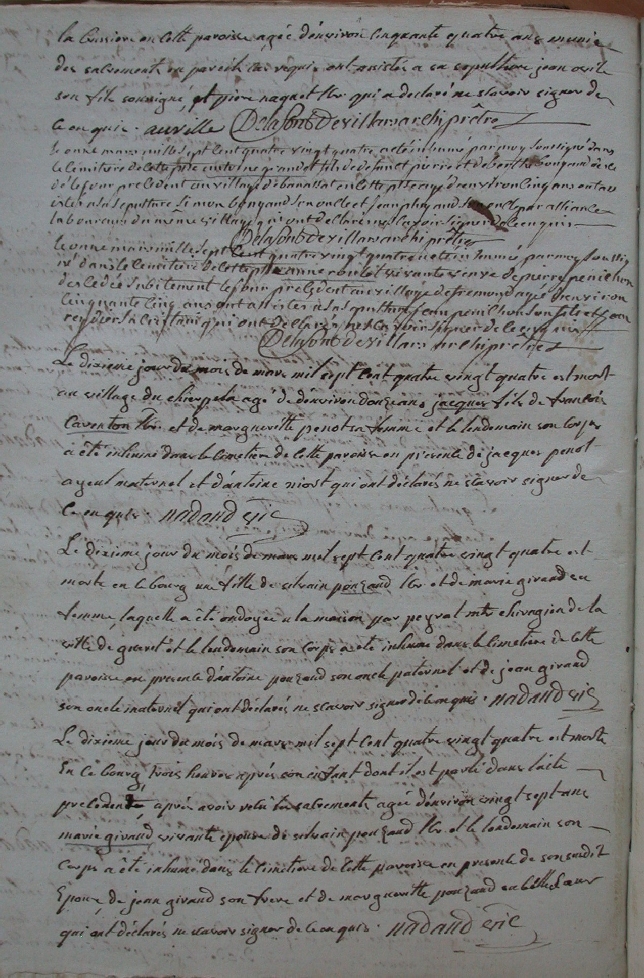 la bussiere en cette paroisse agée d'environ cinquante quatre ans munie
des sacrements en presence ont assistés a sa sepulture jean
son fils soussigné et pierre naquet lbr qui a declaré ne scavoir signer de
ce enquis. auville Delafont Devillars archiprêtre
le onze mars mille sept cent quatre vingt quatre a été inhumé par moy soussigné dans
le cimitiere de cette psse antoine grandet fils de defunt pierre et de bougeaud
le jour precedent au village de banassat en cette psse agé d'environ cinq ans ont
sepulture Simon bougeaud son oncle et jean son oncle par alliance
laboureurs du même village qui ont declaré ne scavoir signer de ce enquis
Delafont Devillars archiprêtre
le onze mars mille sept cent quatre vingt quatre a eté inhumée par moy soussig
né dans le cimitiere de cette psse anne vivante veuve de pierre penichon
decedée subitement le jour precedent au village de fremond agée d'environ
cinquante cinq ans ont assistés a sa sepulture jean penichon son fils et jean
qui ont declaré ne scavoir signer de ce enquis
Delafont devillars archiprestre
Le dixieme jour du mois de mars mil sept cent quatre vingt quatre est mort
au village du agé d'environ douze ans jacques fils de francois
Caventon lbr et de margueritte penot sa femme et le lendemain son corps
a été inhumé dans le Cimetiere de Cette paroisse en presence de jacques penot
ayeul maternel et d'antoine niort qui ont déclarés ne scavoir signer de
Ce enquis. nadaud vic
Le dixieme jour du mois de mars mil sept cent quatre vingt quatre est
morte en ce bourg une fille de silvain pouzaud lbr et de marie giraud sa
femme, laquelle a été ondoyée a la maison par peyrat mtre chirugien de la
ville de gueret et le lendemain son Corps a été inhumé dans le Cimetiere de Cette
paroisse en presence d'antoine pouzaud son oncle paternel et de jean giraud
son oncle maternel qui ont déclarés ne scavoir signer de ce enquis. nadaud vic
Le dixieme jour du mois de mars mil sept cent quatre vingt quatre est morte
En ce bourg trois heures après son enfant dont il est parlé dans lacte
precedent, après avoir reçu les sacrements agée d'environ vingt sept ans
marie giraud vivante epouse de silvain pouzaud lbr et le lendemain son
Corps a été inhumé dans le Cimetiere de Cette paroisse en presence de son susdit
Epoux de jean giraud son frere et de margueritte pouzaud sa belle soeur
qui ont déclarés ne scavoir signer de ce enquis. nadaud vic